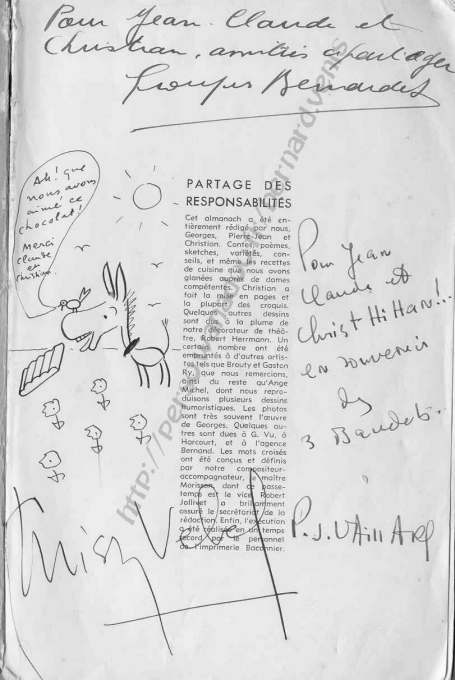 Pour Jean-Claude et
Christian, amitiés à partager
Georges Bernardet
Ah! que
nous avons
aimé ce
chocolat!
Merci
Claude
et
Christian.
PARTAGE DES
RESPONSABILITÉS
Cet almanach a été en-
tièrement rédigé par nous,
Georges, Pierre-Jean et
Christian. Contes, poèmes,
sketches, variétés, con-
seils, et même les recettes
de cuisine que nous avons
glanées auprès de dames
compétentes. Christian a
fait la mise en pages et
la plupart des croquis.
Quelques autres dessins
sont dus à la plume de
notre décorateur de théâ-
tre, Robert Herrmann. Un
certain nombre ont été
empruntés à d'autres artis-
tes tels que Brouty et Gaston
Ry, que nous remercions,
ainsi du reste qu'Ange
Michel, dont nous repro-
duisons plusieurs dessins
humoristiques. Les photos
sont très souvent l'œuvre
de Georges. Quelques au-
tres sont dues à G. Vu, à
Harcourt, et à l'agence
Bernand. Les mots croisés
ont été conçus et définis
par notre compositeur-
accompagnateur, maître
Morisson, dont ce passe-
temps est le vice. Robert
Jollivet a brillamment
assuré le secrétariat de la
rédaction. Enfin, l'exécution
a été réalisée en un temps
record par le personnel
de l'imprimerie Baconnier.
Pour Jean
Claude et
Christ Hittan!..
en souvenir
des
3 Baudets.
P.J. VAILLARD